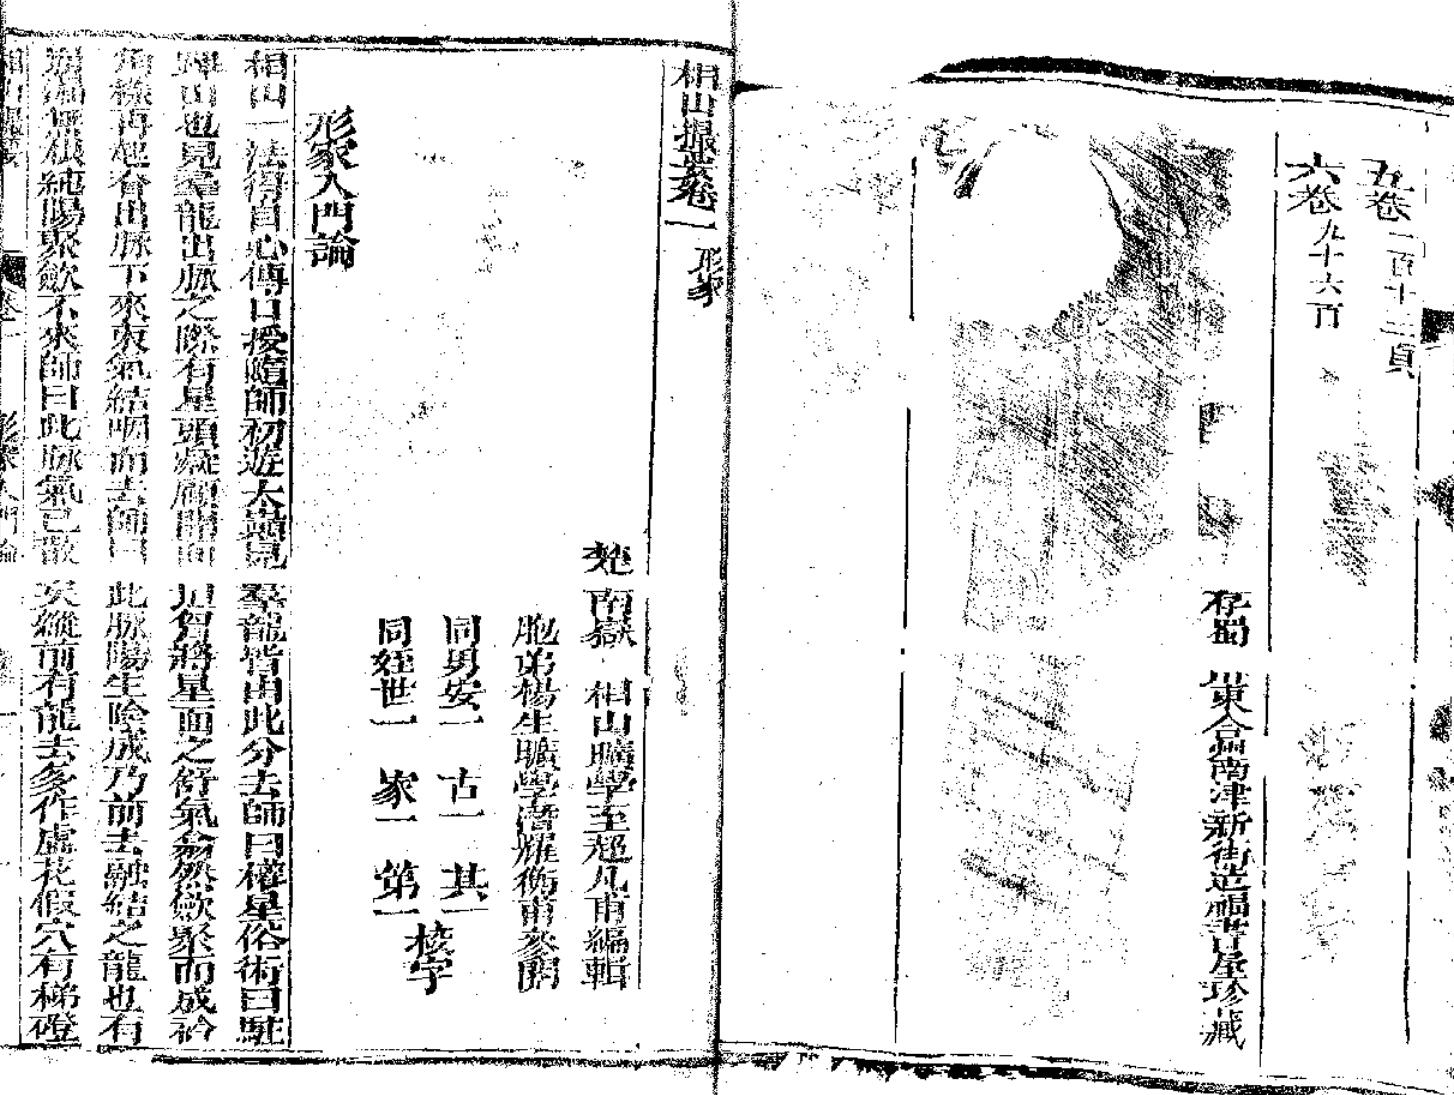 五卷一百十二頁
六卷九十六頁
存蜀東合州南津新街造福書屋珍藏
相山撮要卷一 形家
楚南嶽 相山曠學至超凡甫編輯
胞弟楊生曠學潛耀衡甫參閱
同男安一 古一 其一
同姪世一 家一 第一
校字
形家入門論
相山一法得自心傳口授隨師初遊太嶽見羣龍皆由此分去師曰權星俗術曰駐
蹕山也見羣龍出脉之際有星頭凝顧關面坦胷將星面之舒氣翕然歛聚而成衿
角條再起脊出脉下來束氣結咽而去師曰此脉陽生陰成乃前去融結之龍也有
無根純陽聚歛不來師曰此脉氣已散矣縱前有龍去多作虛花假穴有梯磴
卷一 形家入門論 一